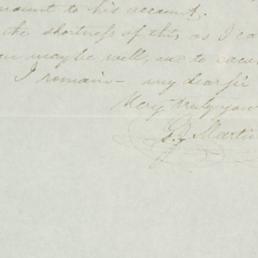 mount to his account.
the shortness of this, as I ca
may be well, and to
I remain - my dear Sir
Very truly your
Martin